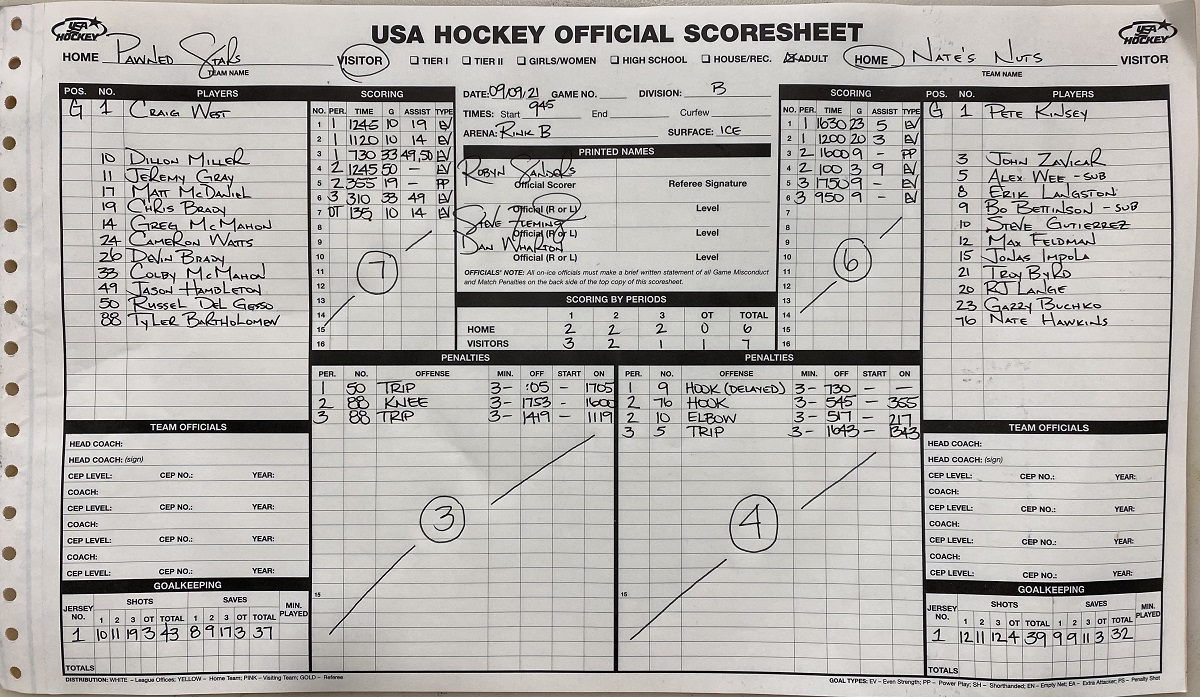 USA HOCKEY
USA HOCKEY OFFICIAL SCORESHEET
USA HOCKEY
HOME Pawned Stars VISITOR
TEAM NAME
TIER I TIER II GIRLS/WOMEN HIGH SCHOOL HOUSE/REC. ADULT
HOME Nate's Nuts VISITOR
TEAM NAME
POS. NO. PLAYERS
G 1 Craig West
10 Dillon Miller
11 Jeremy Gray
17 Matt McDaniel
19 Chris Brady
14 Greg McMahon
24 Cameron Watts
26 Devin Brady
33 Colby McMahon
49 Jason Hambleton
50 Russel Del Gesso
88 Tyler Bartholomew
SCORING
NO. PER. TIME G ASSIST TYPE
1 1 1245 10 19 EV
2 1 1120 10 14 EV
3 1 730 33 49,50 EV
4 2 1245 50 - EV
5 2 355 19 - PP
6 3 310 33 49 EV
7 OT 135 10 14 EV
8
9
10
11
12
13
14
15
16
7
DATE: 09/09/21 GAME NO. DIVISION: B
TIMES: Start 945 End Curfew
ARENA: Rink B SURFACE: ICE
PRINTED NAMES
Robyn Sanders
Official Scorer Referee Signature
Official (R or L) Level
Steve Fleming
Official (R or L) Level
Dan Wharton
Official (R or L) Level
OFFICIALS' NOTE: All on-ice officials must make a brief written statement of all Game Misconduct
and Match Penalties on the back side of the top copy of this scoresheet.
SCORING BY PERIODS
1 2 3 OT TOTAL
HOME 2 2 2 0 6
VISITORS 3 2 1 1 7
SCORING
NO. PER. TIME G ASSIST TYPE
1 1 1630 23 5 EV
2 1 1200 20 3 EV
3 2 1600 9 - PP
4 2 100 3 9 EV
5 3 1750 9 - EV
6 3 950 9 - EV
7
8
9
10
11
12
13
14
15
16
6
POS. NO. PLAYERS
G 1 Pete Kinsey
3 John Zavicar
5 Alex Wee - sub
8 Erik Langston
9 Bo Bettinson - sub
10 Steve Gutierrez
12 Max Feldman
15 Jonas Impola
21 Troy Byrd
20 RJ Lange
23 Gazzy Buchko
76 Nate Hawkins
PENALTIES
PER. NO. OFFENSE MIN. OFF START ON
1 50 TRIP 3- :05 - 1705
2 88 KNEE 3- 1753 - 1600
3 88 TRIP 3- 1419 - 1119
3
15
PENALTIES
PER. NO. OFFENSE MIN. OFF START ON
1 9 HOOK (DELAYED) 3- 730 - -
2 76 HOOK 3- 545 - 355
2 10 ELBOW 3- 517 - 217
3 5 TRIP 3- 1643 - 1343
4
15
TEAM OFFICIALS
HEAD COACH:
HEAD COACH: (sign)
CEP LEVEL: CEP NO.: YEAR:
COACH:
CEP LEVEL: CEP NO.: YEAR:
COACH:
CEP LEVEL: CEP NO.: YEAR:
COACH:
CEP LEVEL: CEP NO.: YEAR:
GOALKEEPING
JERSEY NO. SHOTS SAVES MIN. PLAYED
1 2 3 OT TOTAL 1 2 3 OT TOTAL
1 10 11 19 3 43 8 9 17 3 37
TOTALS
TEAM OFFICIALS
HEAD COACH:
HEAD COACH: (sign)
CEP LEVEL: CEP NO.: YEAR:
COACH:
CEP LEVEL: CEP NO.: YEAR:
COACH:
CEP LEVEL: CEP NO.: YEAR:
COACH:
CEP LEVEL: CEP NO.: YEAR:
GOALKEEPING
JERSEY NO. SHOTS SAVES MIN. PLAYED
1 2 3 OT TOTAL 1 2 3 OT TOTAL
1 12 11 12 4 39 9 9 11 3 32
TOTALS
DISTRIBUTION: WHITE - League Offices; YELLOW - Home Team; PINK - Visiting Team; GOLD - Referee
GOAL TYPES: EV - Even Strength; PP - Power Play; SH - Shorthanded; EN - Empty Net; EA - Extra Attacker; PS - Penalty Shot